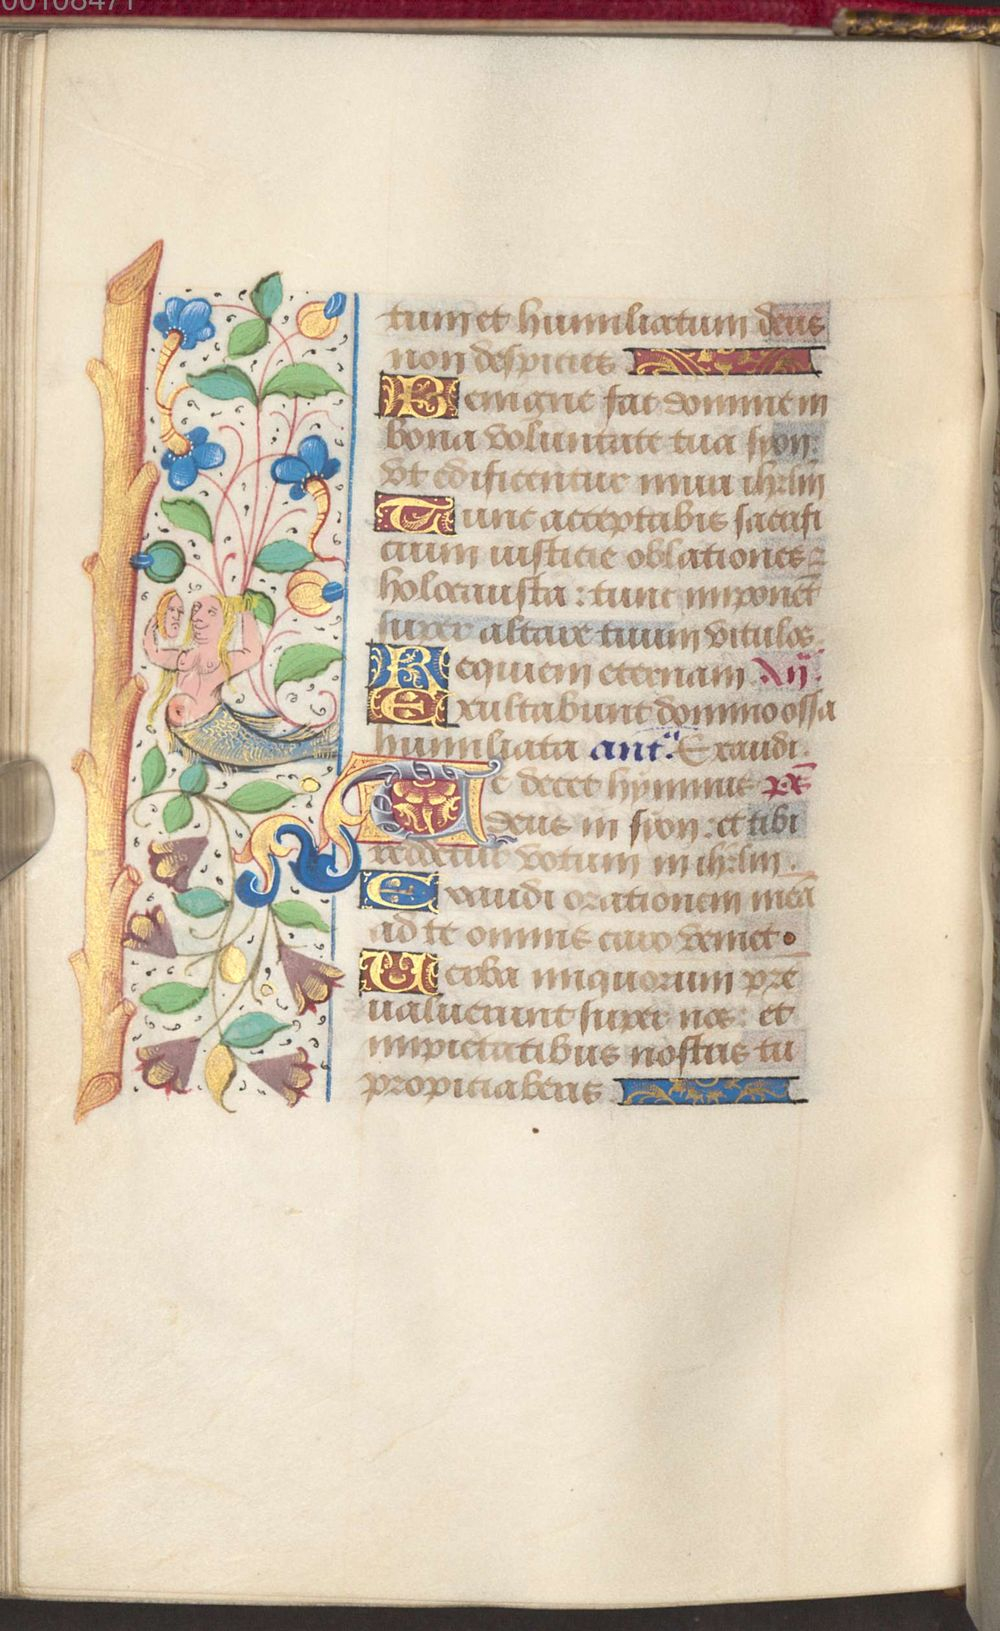 00108471
tum et humiliatum deus
non despicies
Benigne fac domine in
bona voluntate tua syon:
vt edificentur muri ihrlm̄
Tunc acceptabis sacrifi
cium iusticie oblationes ⁊
holocausta: tunc imponēt
super altare tuum vitulos.
Requiem eternam
Exultabunt domino ossa
humiliata antᵃ. Exaudi.
Te decet hymnus ps̄
deus in syon: et tibi
reddetur votum in ihrlm̄.
Exaudi orationem meā
ad te omnis caro veniet.
Uerba iniquorum pre
ualuerunt super nos: et
impietatibus nostris tu
propiciaberis